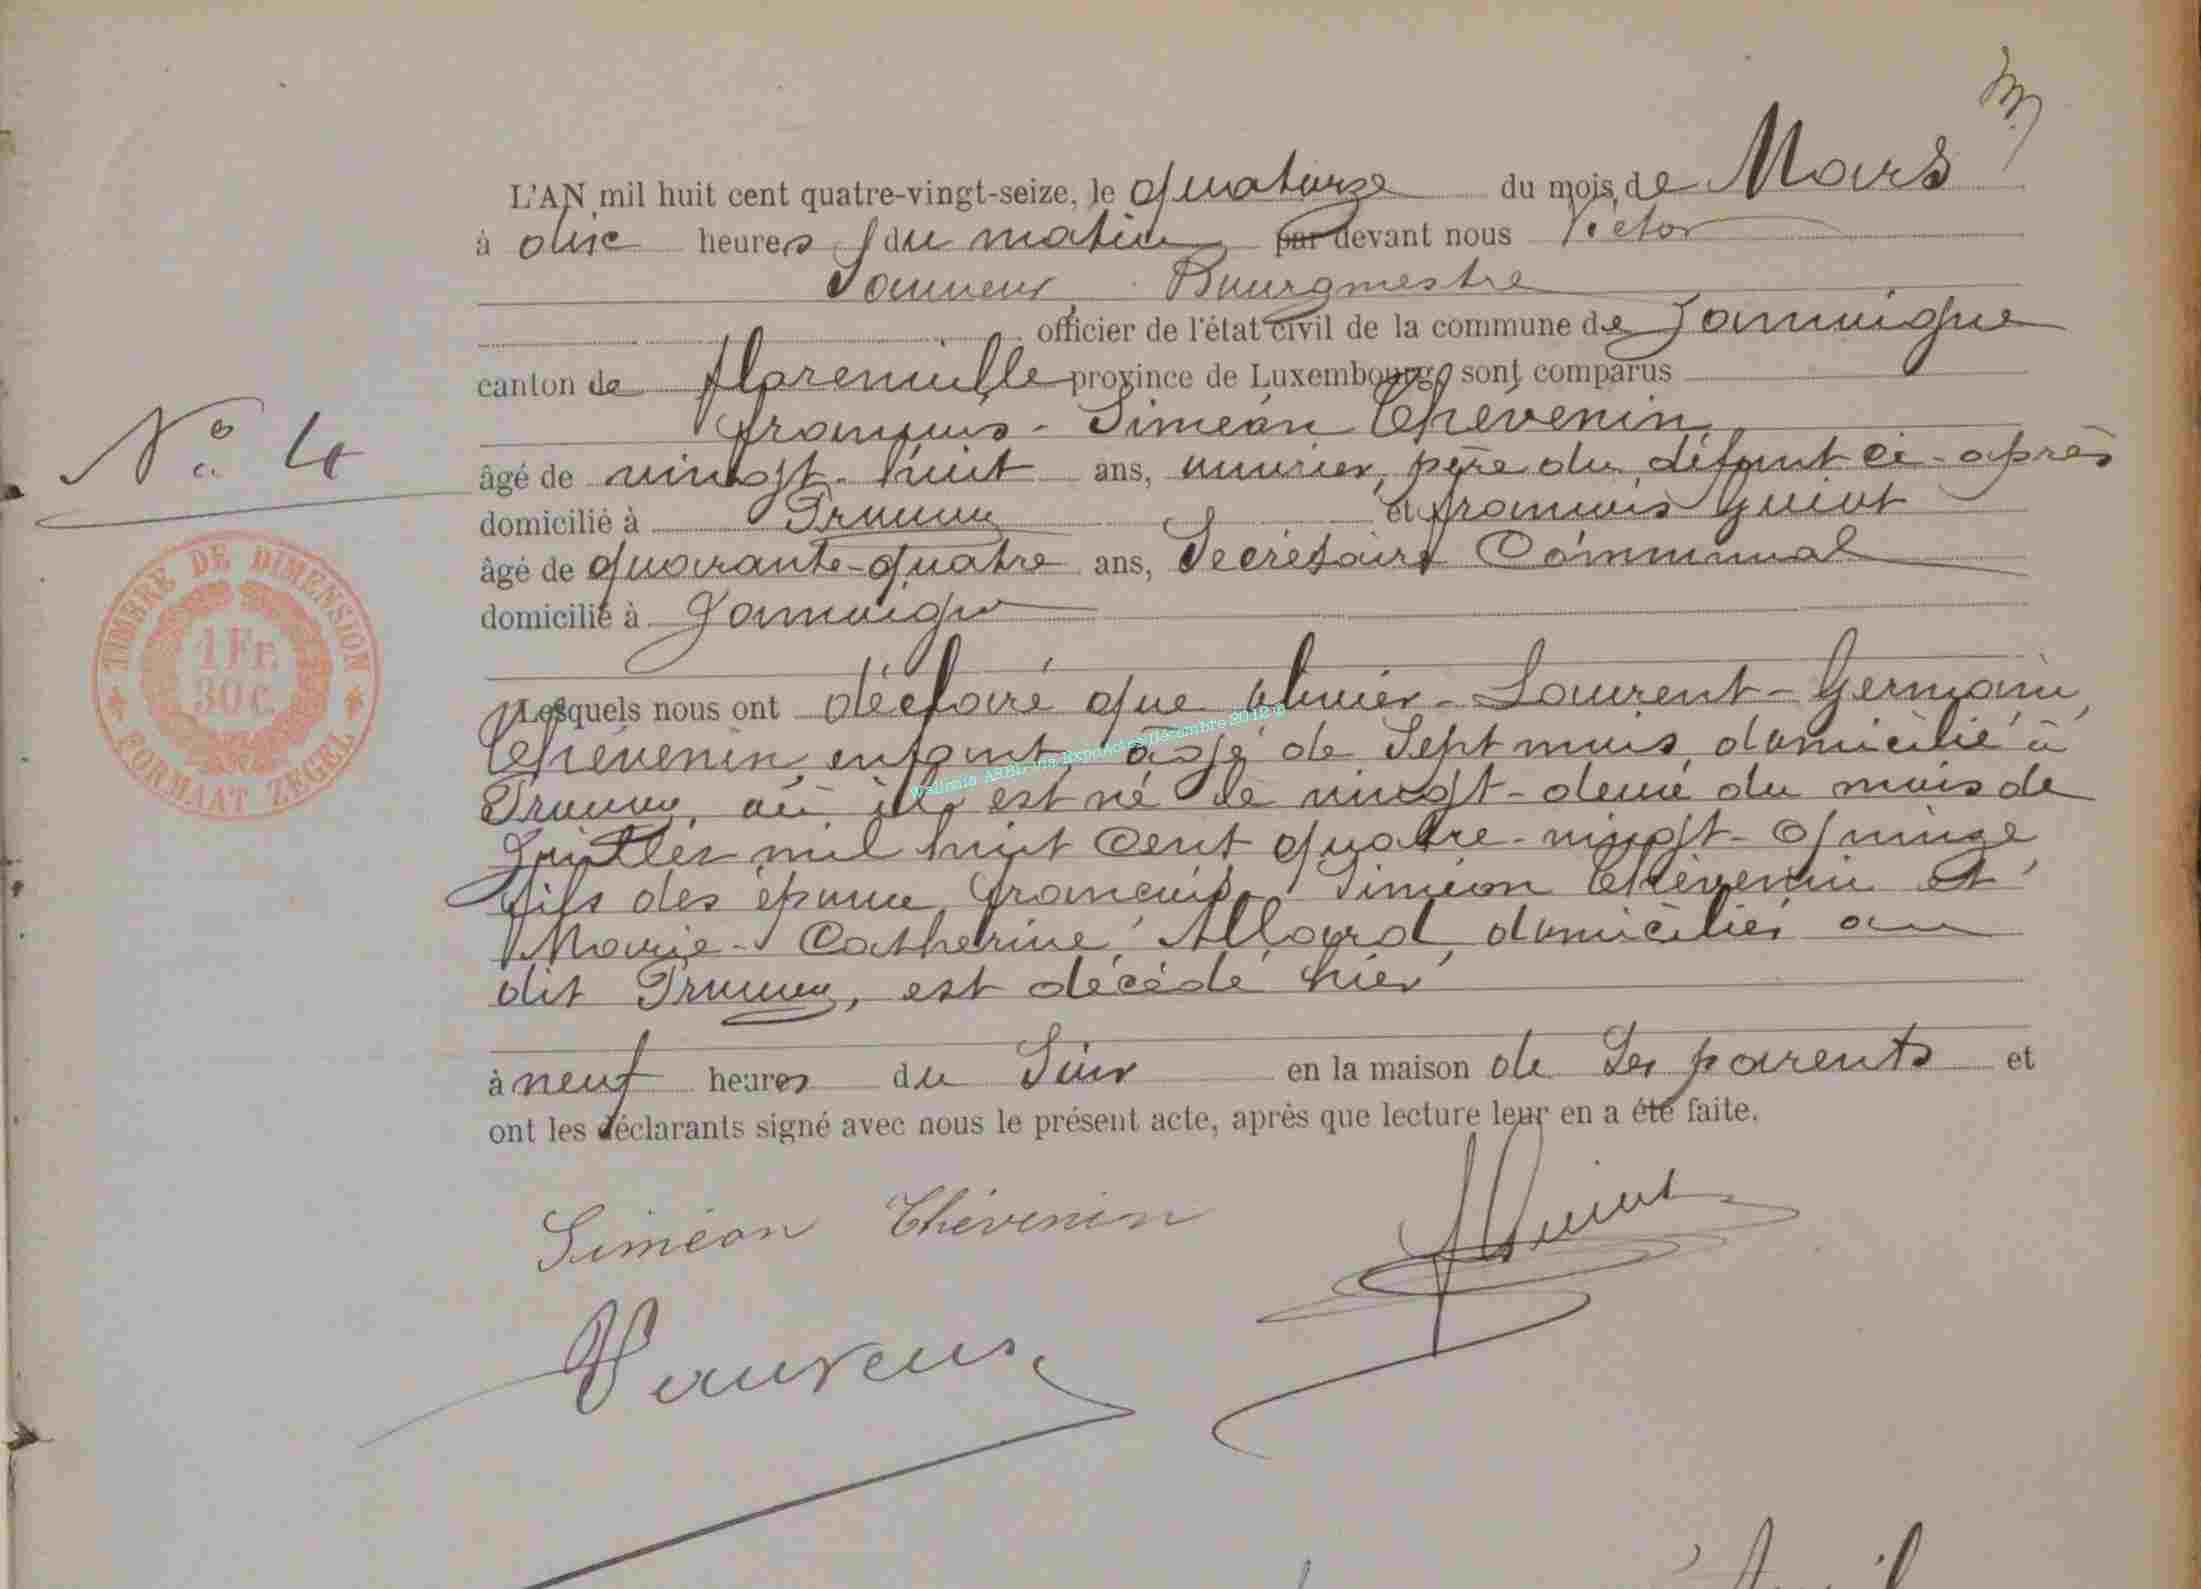 L'AN mil huit cent quatre-vingt-seize, le quatorze du mois de Mars
à dix heures du matin par devant nous Victor
Sauveur, Bourgmestre
officier de l'état civil de la commune de Jamoigne
canton de florenville province de Luxembourg, sont comparus
françois-Siméon Thévenin,
N° 4
âgé de vingt-huit ans, ouvrier, père du défunt ci-après
domicilié à Prouvy et françois Guiot
âgé de quarante-quatre ans, Secrétaire Communal
domicilié à Jamoigne
TIMBRE DE DIMENSION
1 Fr.
30 c.
FORMAAT ZEGEL
Lesquels nous ont déclaré que olivier-Laurent-Germain,
Thévenin, enfant, âgé de Sept mois, domicilié à
Prouvy, où il est né le vingt-deux du mois de
Juillet mil huit cent quatre-vingt-quinze
fils des époux françois-Siméon Thévenin et
Marie-Catherine Allard, domiciliés au
dit Prouvy, est décédé hier
à neuf heures du Soir en la maison de Ses parents et
ont les déclarants signé avec nous le présent acte, après que lecture leur en a été faite.
Siméon Thévenin
Guiot
VSauveur